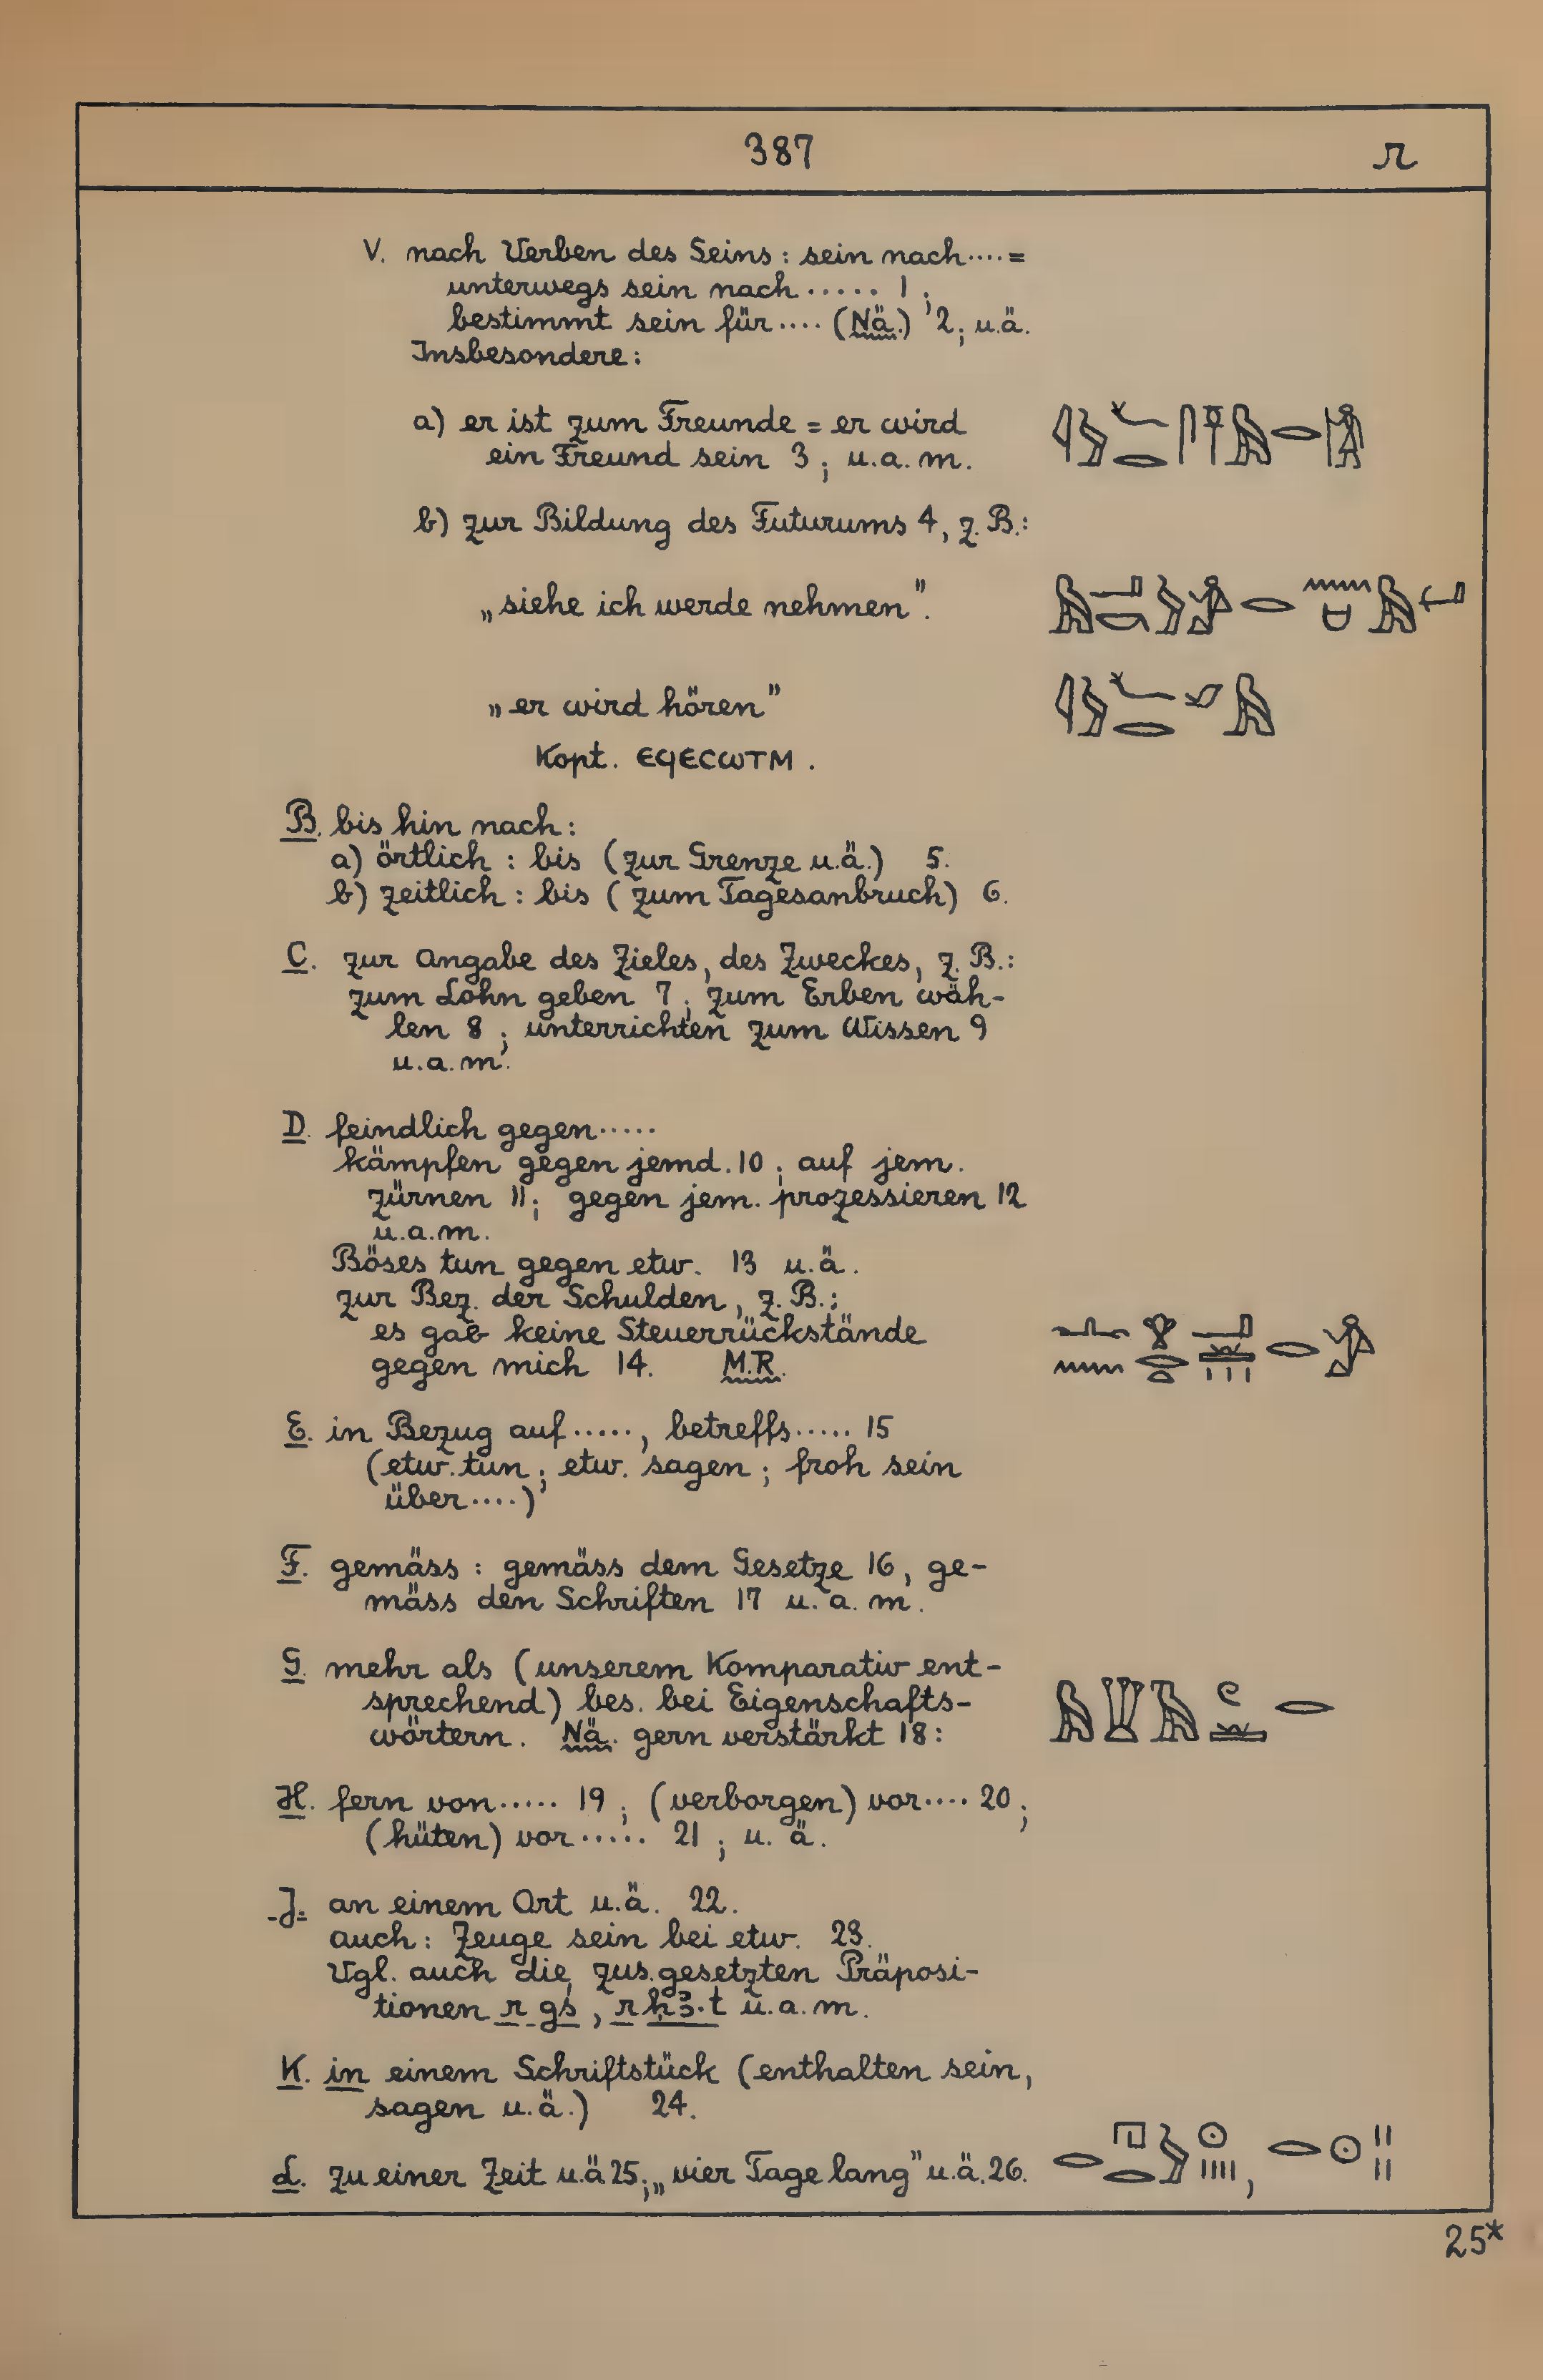 387
r
V. nach Verben des Seins : sein nach .... =
unterwegs sein nach ..... 1 ;
bestimmt sein für .... (Nä.) 2 ; u.ä.
Insbesondere :
a) er ist zum Freunde = er wird
ein Freund sein 3 ; u. a. m.
b) zur Bildung des Futurums 4, z. B.:
„siehe ich werde nehmen".
„er wird hören"
Kopt. ⲉϥⲉⲥⲱⲧⲙ .
B. bis hin nach :
a) örtlich : bis (zur Grenze u.ä.) 5.
b) zeitlich : bis (zum Tagesanbruch) 6.
C. zur Angabe des Zieles, des Zweckes, z. B.:
zum Lohn geben 7 ; zum Erben wäh-
len 8 ; unterrichten zum Wissen 9
u. a. m.
D. feindlich gegen .....
kämpfen gegen jemd. 10 ; auf jem.
zürnen 11 ; gegen jem. prozessieren 12
u. a. m.
Böses tun gegen etw. 13 u. ä.
zur Bez. der Schulden, z. B.:
es gab keine Steuerrückstände
gegen mich 14. M.R.
E. in Bezug auf ....., betreffs ..... 15
(etw. tun ; etw. sagen ; froh sein
über ....)
F. gemäss : gemäss dem Gesetze 16, ge-
mäss den Schriften 17 u. a. m.
G. mehr als (unserem Komparativ ent-
sprechend) bes. bei Eigenschafts-
wörtern. Nä. gern verstärkt 18 :
H. fern von ..... 19 ; (verborgen) vor .... 20 ;
(hüten) vor ..... 21 ; u. ä.
J. an einem Ort u.ä. 22.
auch : Zeuge sein bei etw. 23.
Vgl. auch die zus.gesetzten Präposi-
tionen r gś , r ḥꜣ.t u. a. m.
K. in einem Schriftstück (enthalten sein,
sagen u.ä.) 24.
L. zu einer Zeit u.ä 25 ; „vier Tage lang" u.ä. 26.
25*